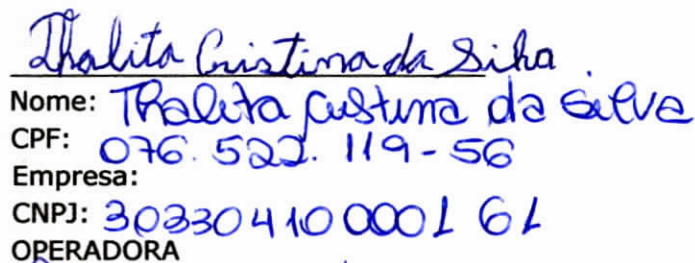 Thalita Cristina da Silva
Nome: Thalita Cristina da Silva
CPF: 076.522.119-56
Empresa:
CNPJ: 30330410000161
OPERADORA